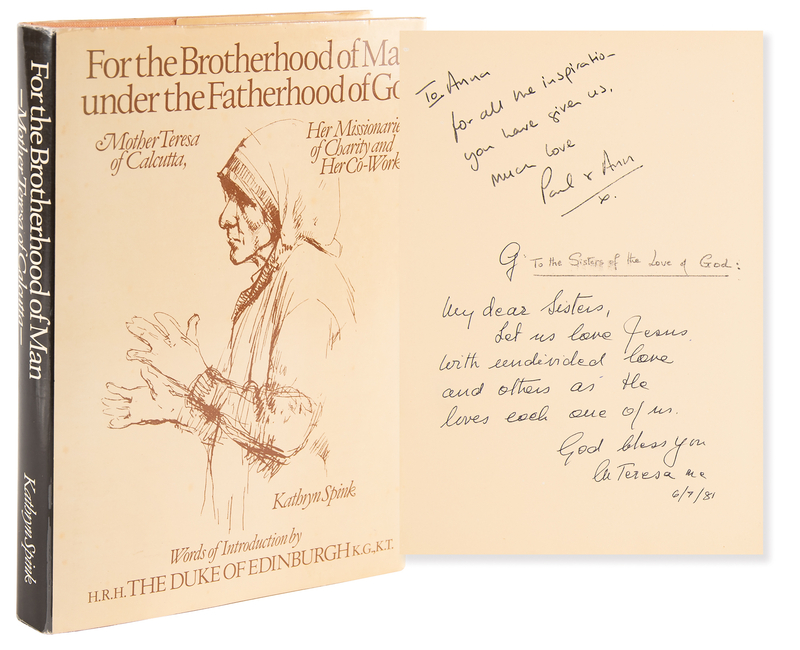 For the Brotherhood of Man
—Mother Teresa of Calcutta—
Kathryn Spink
For the Brotherhood of Ma
under the Fatherhood of Go
Mother Teresa
of Calcutta,
Her Missionarie
of Charity and
Her Co-Work
Kathryn Spink
Words of Introduction by
H.R.H. THE DUKE OF EDINBURGH K.G., K.T.
To Anna
for all the inspiration
you have given us.
Much love
Paul & Ann
x.
To the Sisters of the Love of God:
My dear Sisters,
Let us love Jesus
with undivided love
and others as He
loves each one of us.
God bless you
M Teresa mc
6/7/81